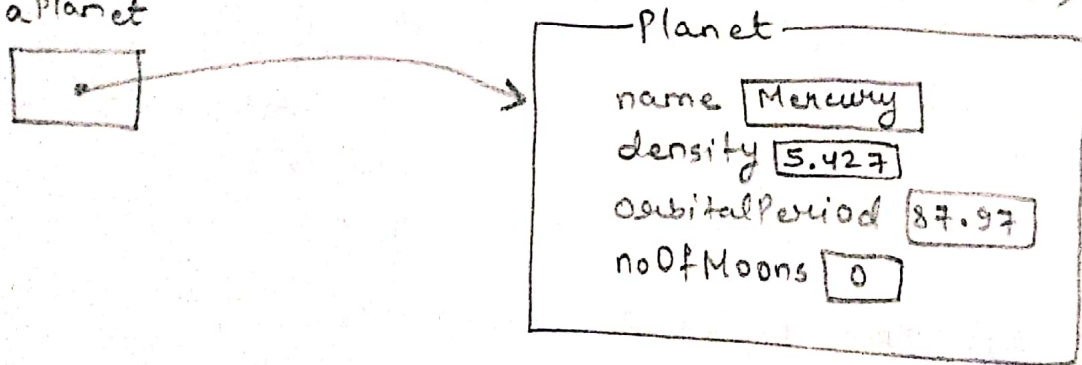 aPlanet
Planet
name Mercury
density 5.427
orbitalPeriod 87.97
noOfMoons 0